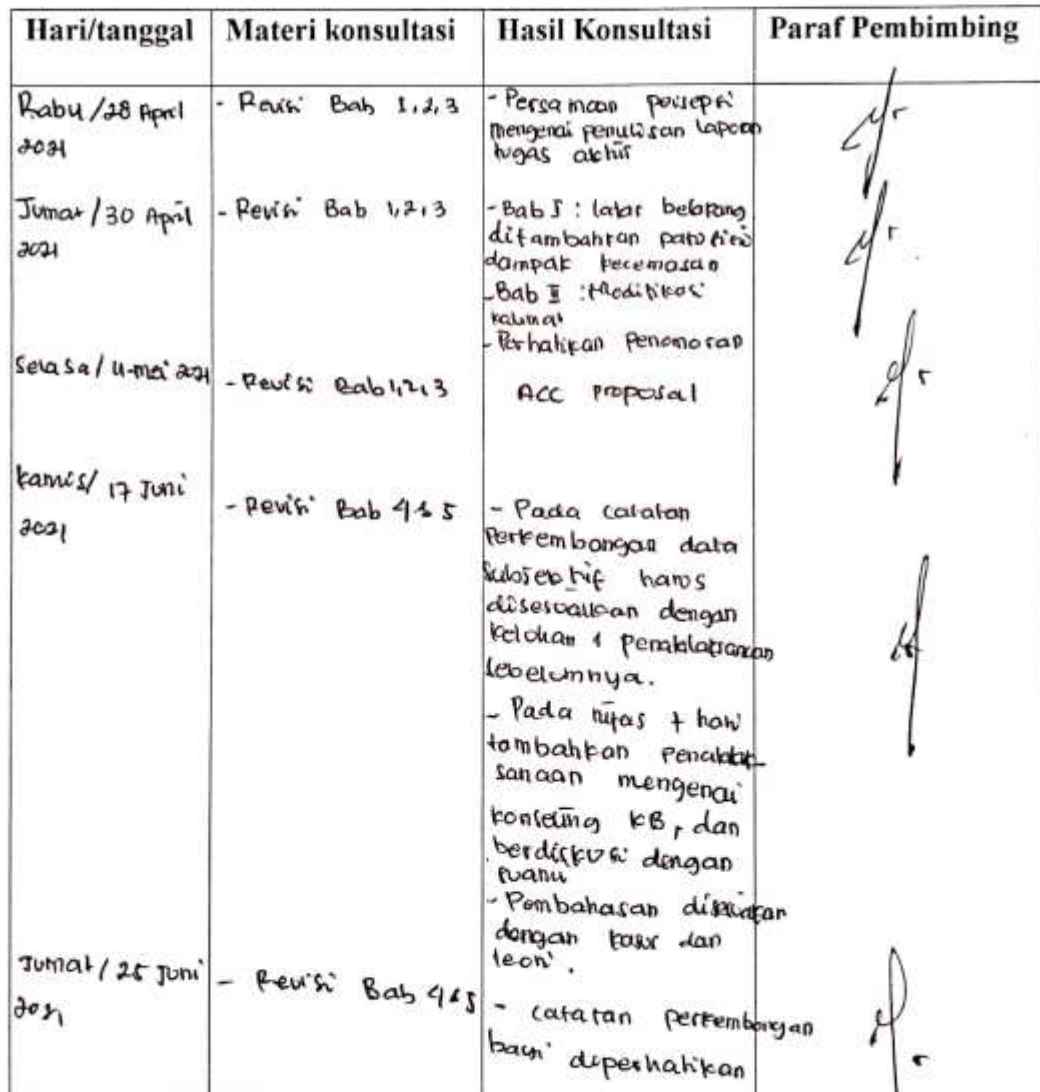 Hari/tanggal
Materi konsultasi
Hasil Konsultasi
Paraf Pembimbing
Rabu /28 April
2021
- Revisi Bab 1,2,3
- Persamaan persepsi
mengenai penulisan laporan
tugas akhir
Jumat / 30 April
2021
- Revisi Bab 1,2,3
- Bab I : latar belakang
ditambahkan
dampak kecemasan
- Bab II : Modifikasi
kalimat
- Perhatikan Penomoran
Selasa / 4-mei 2021
- Revisi Bab 1,2,3
ACC proposal
Kamis/ 17 Juni
2021
- Revisi Bab 4 & 5
- Pada catatan
Perkembangan data
Subjektif harus
disesuaikan dengan
keluhan & penatalaksanaan
sebelumnya.
- Pada nifas 7 hari
tambahkan Penatalak-
sanaan mengenai
konseling KB, dan
berdiskusi dengan
suami
- Pembahasan
dengan kasus dan
teori.
Jumat / 25 Juni
2021
- Revisi Bab 4 & 5
- catatan perkembangan
bayi diperhatikan